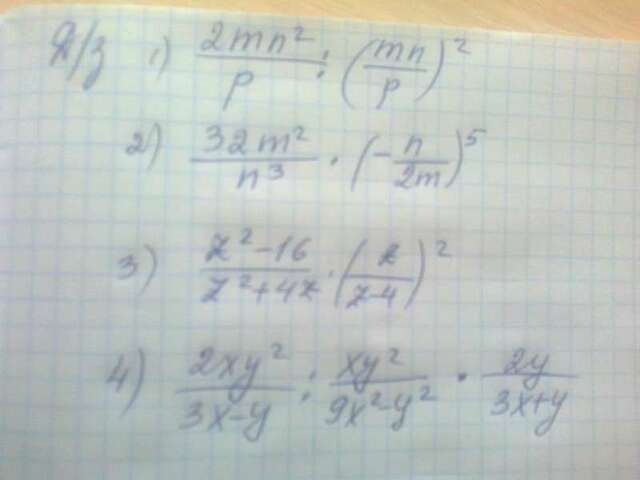 Д/з 1) \frac{2mn^2}{p} : (\frac{mn}{p})^2
2) \frac{32m^2}{n^3} · (-\frac{n}{2m})^5
3) \frac{z^2-16}{z^2+4z} · (\frac{z}{z-4})^2
4) \frac{2xy^2}{3x-y} : \frac{xy^2}{9x^2-y^2} · \frac{2y}{3x+y}